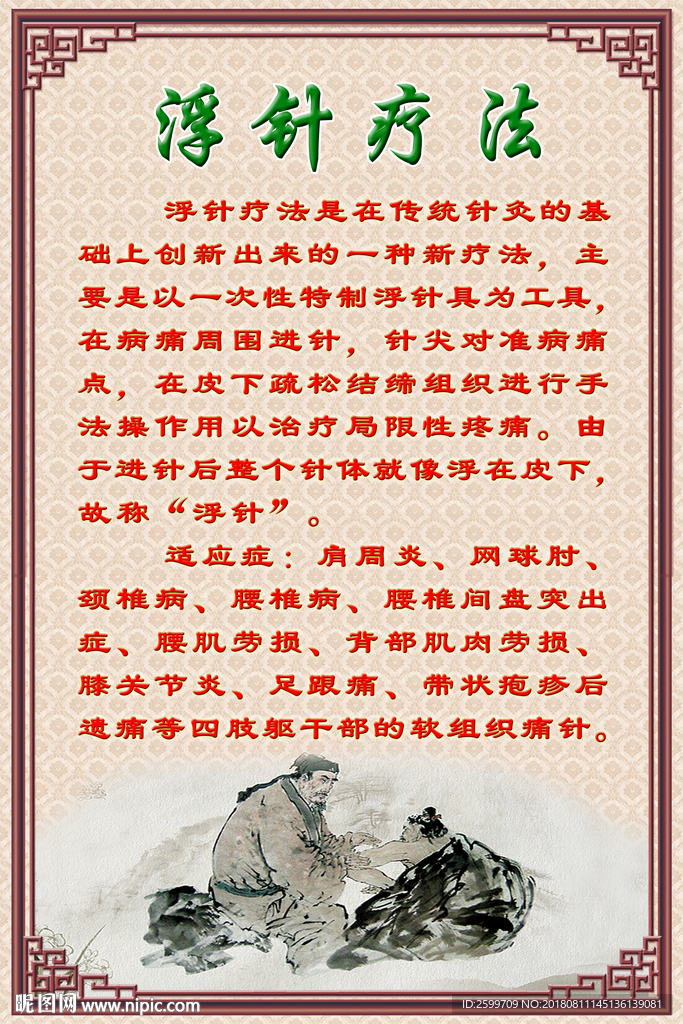 浮针疗法
浮针疗法是在传统针灸的基
础上创新出来的一种新疗法，主
要是以一次性特制浮针具为工具，
在病痛周围进针，针尖对准病痛
点，在皮下疏松结缔组织进行手
法操作用以治疗局限性疼痛。由
于进针后整个针体就像浮在皮下，
故称“浮针”。
适应症：肩周炎、网球肘、
颈椎病、腰椎病、腰椎间盘突出
症、腰肌劳损、背部肌肉劳损、
膝关节炎、足跟痛、带状疱疹后
遗痛等四肢躯干部的软组织痛针。
昵图网 www.nipic.com
ID:2599709 NO:20180811145136139081